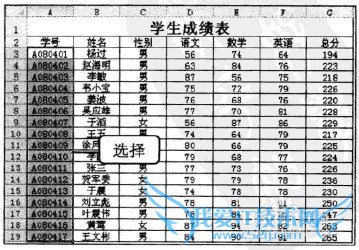 A B C D E F G
1 学生成绩表
2 学号 姓名 性别 语文 数学 英语 总分
3 A080401 杨过 男 56 74 64 194
4 A080402 赵海明 男 63 84 76 223
5 A080403 李敏 男 87 56 75 218
6 A080404 韦小宝 男 75 72 79 226
7 A080405 姜波 男 76 68 76 220
8 A080406 吴应雄 男 77 70 81 228
9 A080407 于滔 女 56 87 86 229
10 A080408 王五 男 74 64 79 217
11 A080409 徐 男 80 66 79 225
12 A080410 李 男 79 68 77 224
13 A080411 张三 男 77 73 76 226
14 A080412 贺军委 女 79 79 78 236
15 A080413 于晨 女 74 78 78 230
16 A080414 刘立彪 男 78 81 250
17 A080415 叶震伟 男 78 84 247
18 A080416 黄莺 女 87 94 82 263
19 A080417 王文彬 男 84 90 265
选择
我爱IT技术网